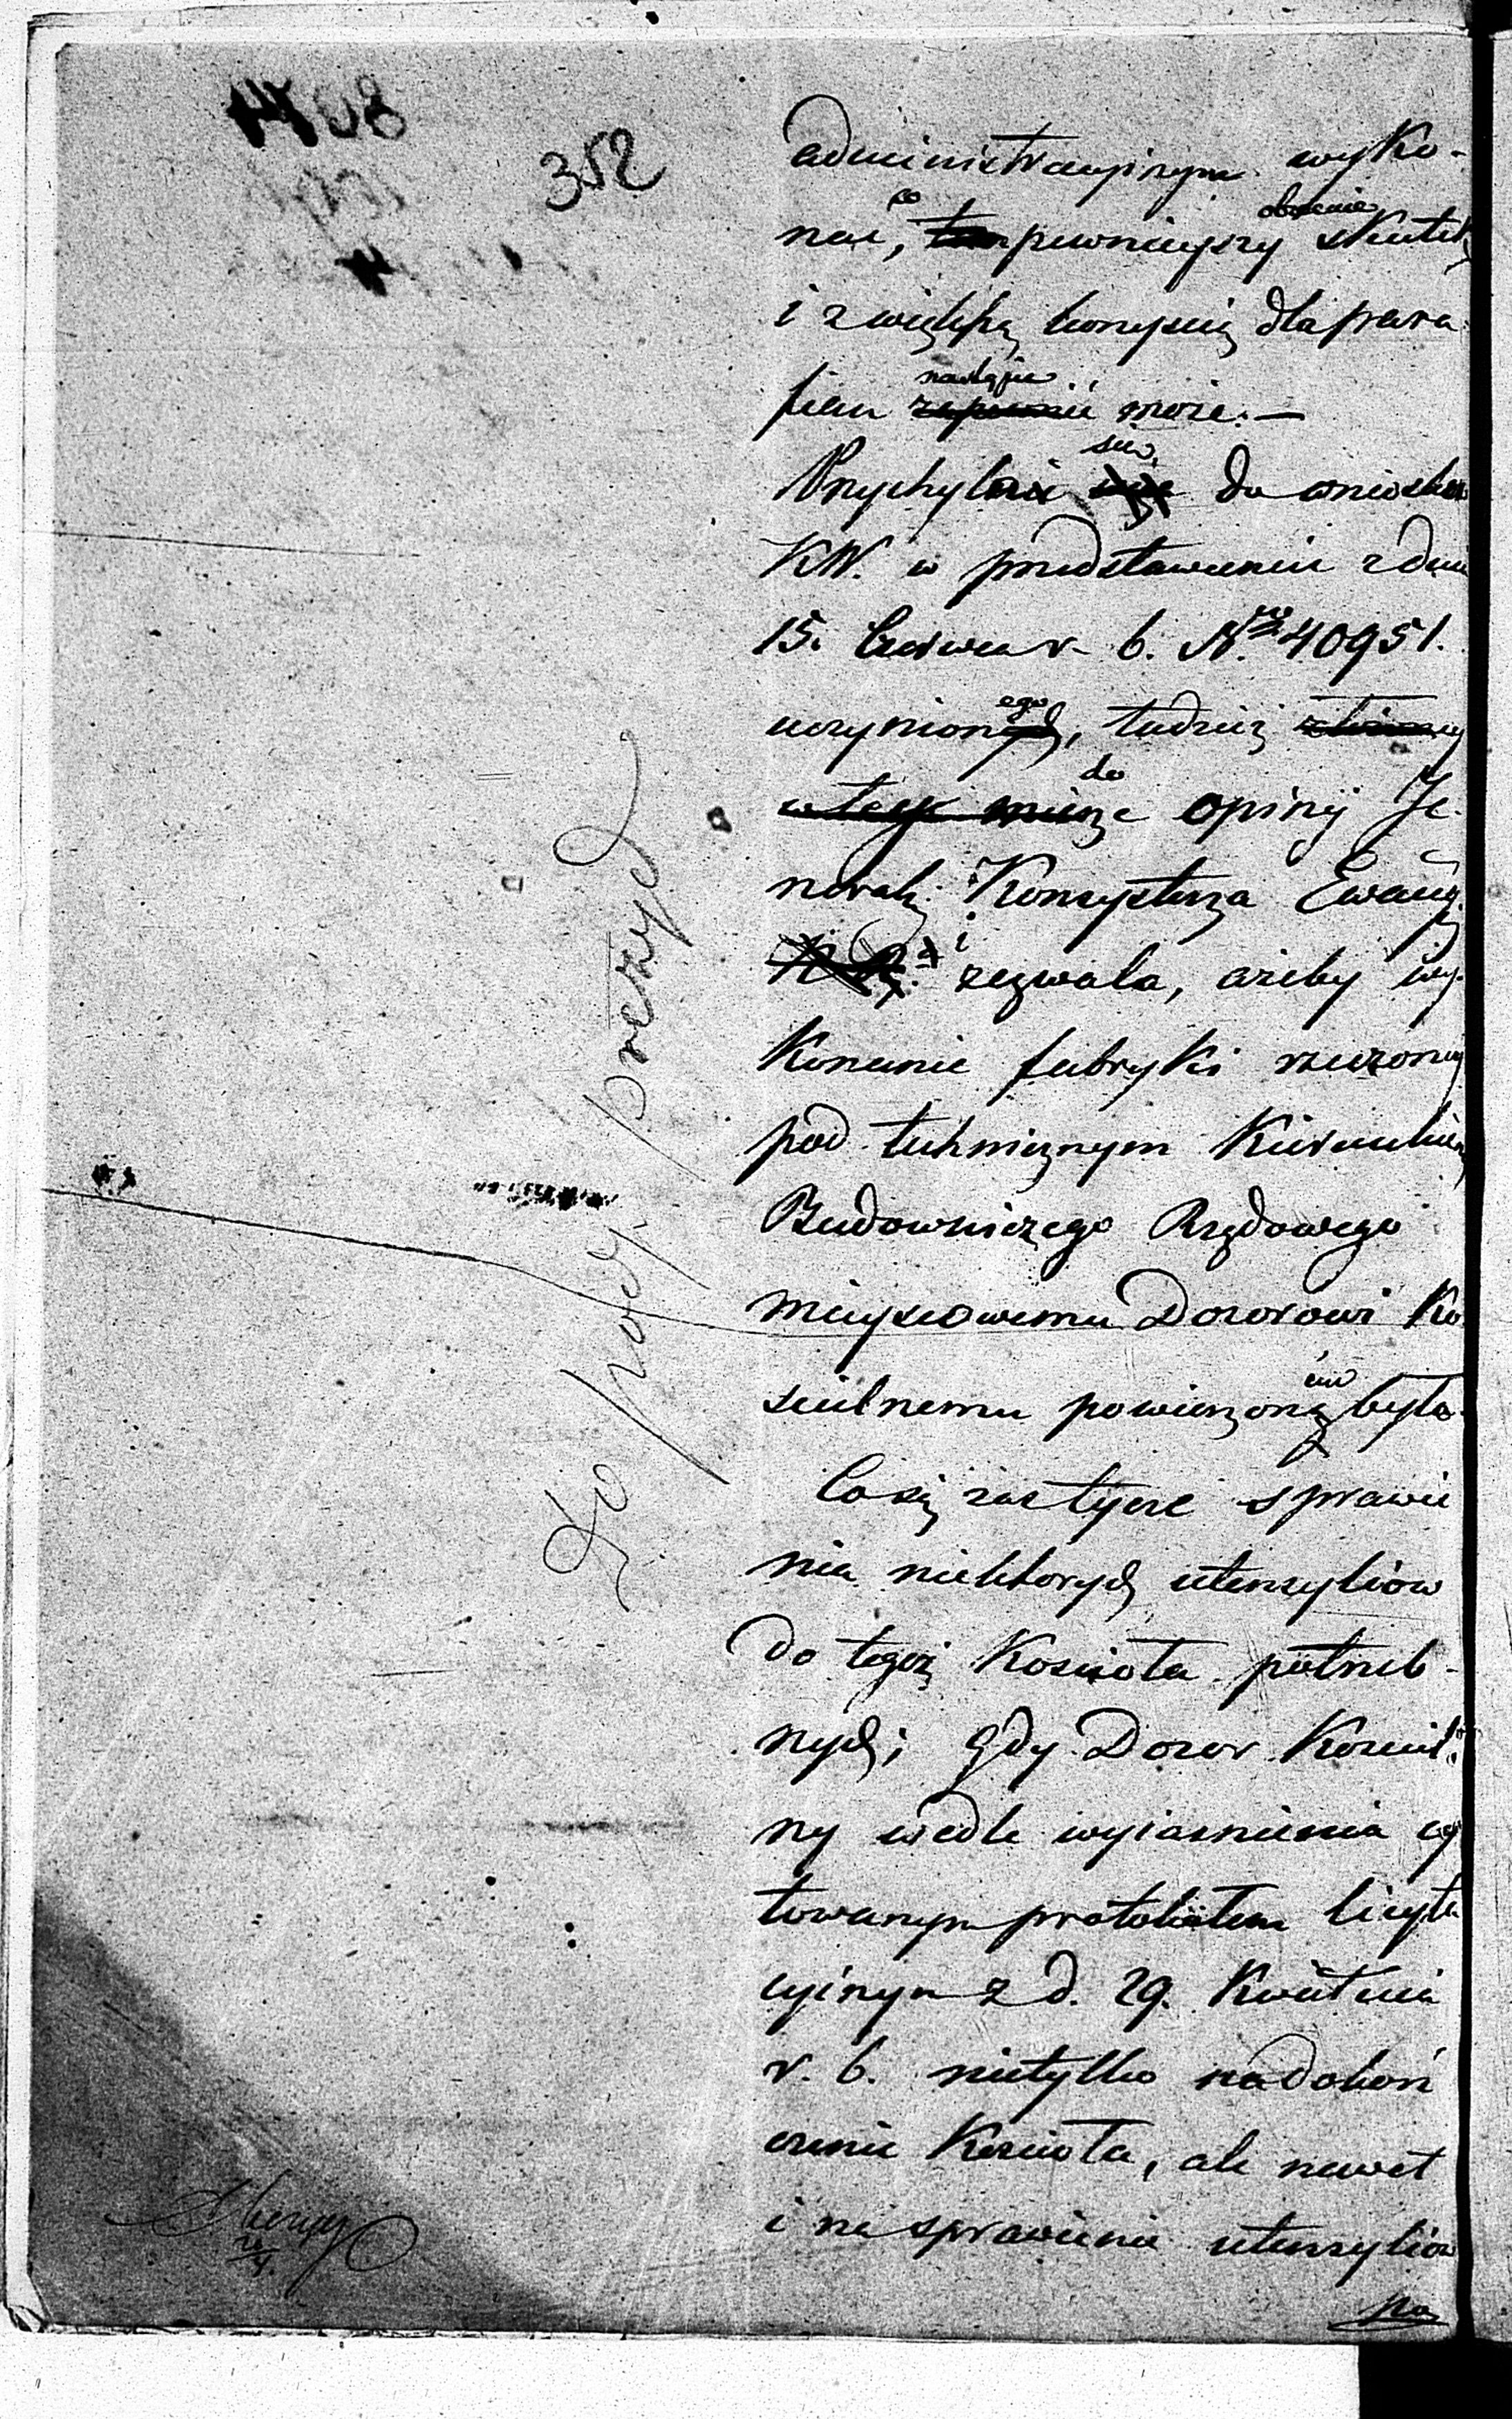 352
administracyinym wyko-
nać, co pewnieyszy obecnie skutek
i z większą korzyścią dla para
fian nastąpić może. —
Przychylaiąc się do wniosku
KW. w przedstawieniu z dnia
15. Czerwca r. b. Nro 40951.
uczynionego, tudzież
do opinij Je-
neralg. Konsystorza Ewang.
zezwala, ażeby wy-
konanie fabryki rzeczoney
pod technicznym kierunkiem
Budowniczego Rządowego
mieyscowemu Dozorowi Ko
scielnemu powierzone było.
Co się zas tycze sprawie
nia niektorych utensyliow
do tegoż Kosciola potrzeb-
nych; gdy Dozor Kosciel-
ny wedle wyiasnienia cy
towanym protokołem licyta
cyinym z d. 29. Kwietnia
r. b. nietylko na dokoń
czenie Kosciola, ale nawet
i na sprawienie utensyliow
na
do poży. prezyd